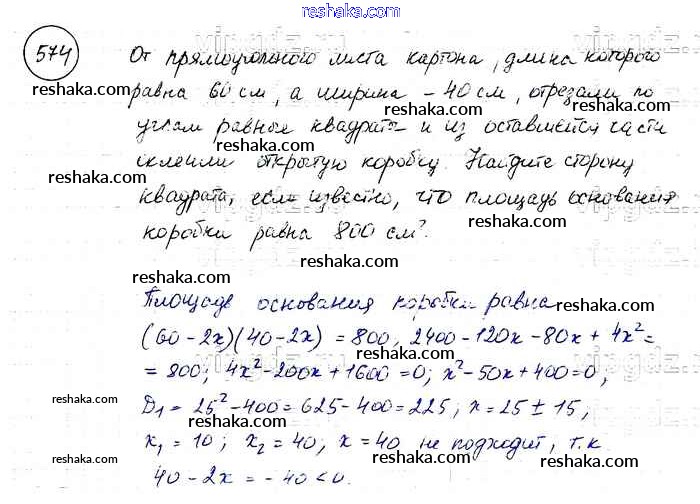 reshaka.com
574
От прямоугольного листа картона, длина которого
reshaka.com reshaka.com reshaka.com
равна 60 см, а ширина - 40 см, отрезали по
углам равные квадраты и из оставшейся части
склеили открытую коробку. Найдите сторону
reshaka.com
квадрата, если известно, что площадь основания
reshaka.com reshaka.com
коробки равна 800 см².
reshaka.com reshaka.com
Площадь основания коробки равна
(60-2x)(40-2x) = 800, 2400-120x-80x+4x²=
reshaka.com reshaka.com reshaka.com
= 800; 4x²-200x+1600=0; x²-50x+400=0,
D₁=25²-400=625-400=225; x=25±15,
reshaka.com reshaka.com
x₁=10; x₂=40, x=40 не подходит, т.к
reshaka.com reshaka.com reshaka.com
40-2x=-40<0.